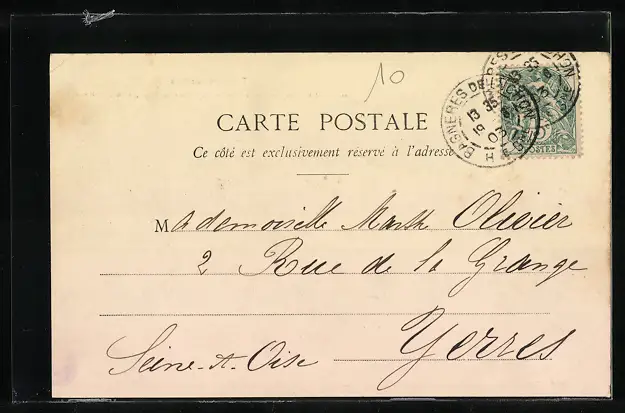 10
CARTE POSTALE
Ce côté est exclusivement réservé à l'adresse
Mademoiselle Marthe Olivier
2 Rue de la Grange
Yerres
Seine-et-Oise
BAGNERES DE LUCHON
13
19
03
POSTES